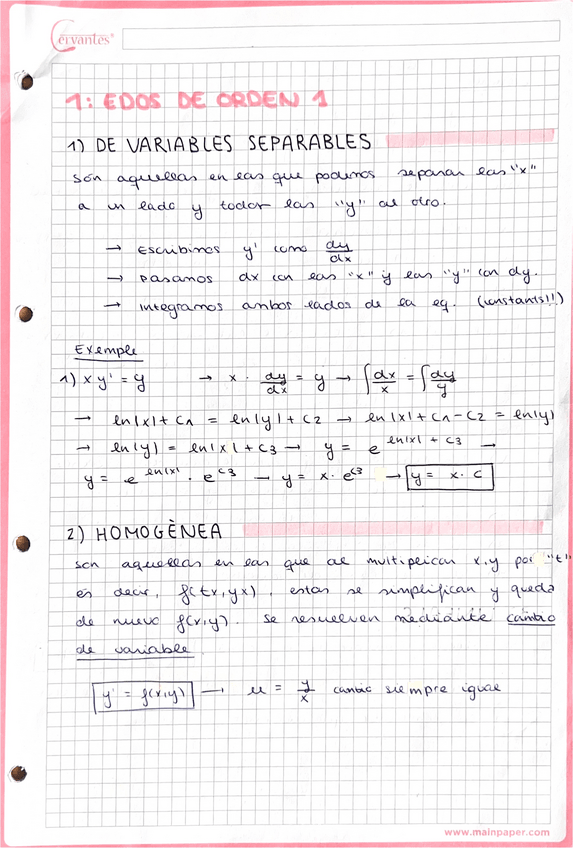 Cervantes®
1: EDOS DE ORDEN 1
1) DE VARIABLES SEPARABLES
son aquellas en las que podemos separar las "x"
a un lado y todas las "y" al otro.
→ Escribimos y' como dy/dx
→ Pasamos dx con las "x" y las "y" con dy.
→ Integramos ambos lados de la eq. (constants!!)
Exemple
1) x y' = y → x · dy/dx = y → ∫dx/x = ∫dy/y
→ ln|x| + C1 = ln|y| + C2 → ln|x| + C1 - C2 = ln|y|
→ ln|y| = ln|x| + C3 → y = e^(ln|x| + C3) →
y = e^(ln|x|) · e^(C3) → y = x · e^(C3) → y = x · C
2) HOMOGÈNEA
son aquellas en las que al multiplicar x,y por "t"
es decir, f(tx,yx), estas se simplifican y queda
de nuevo f(x,y). Se resuelven mediante cambio
de variable.
y' = f(x,y) → u = y/x cambio siempre igual
www.mainpaper.com